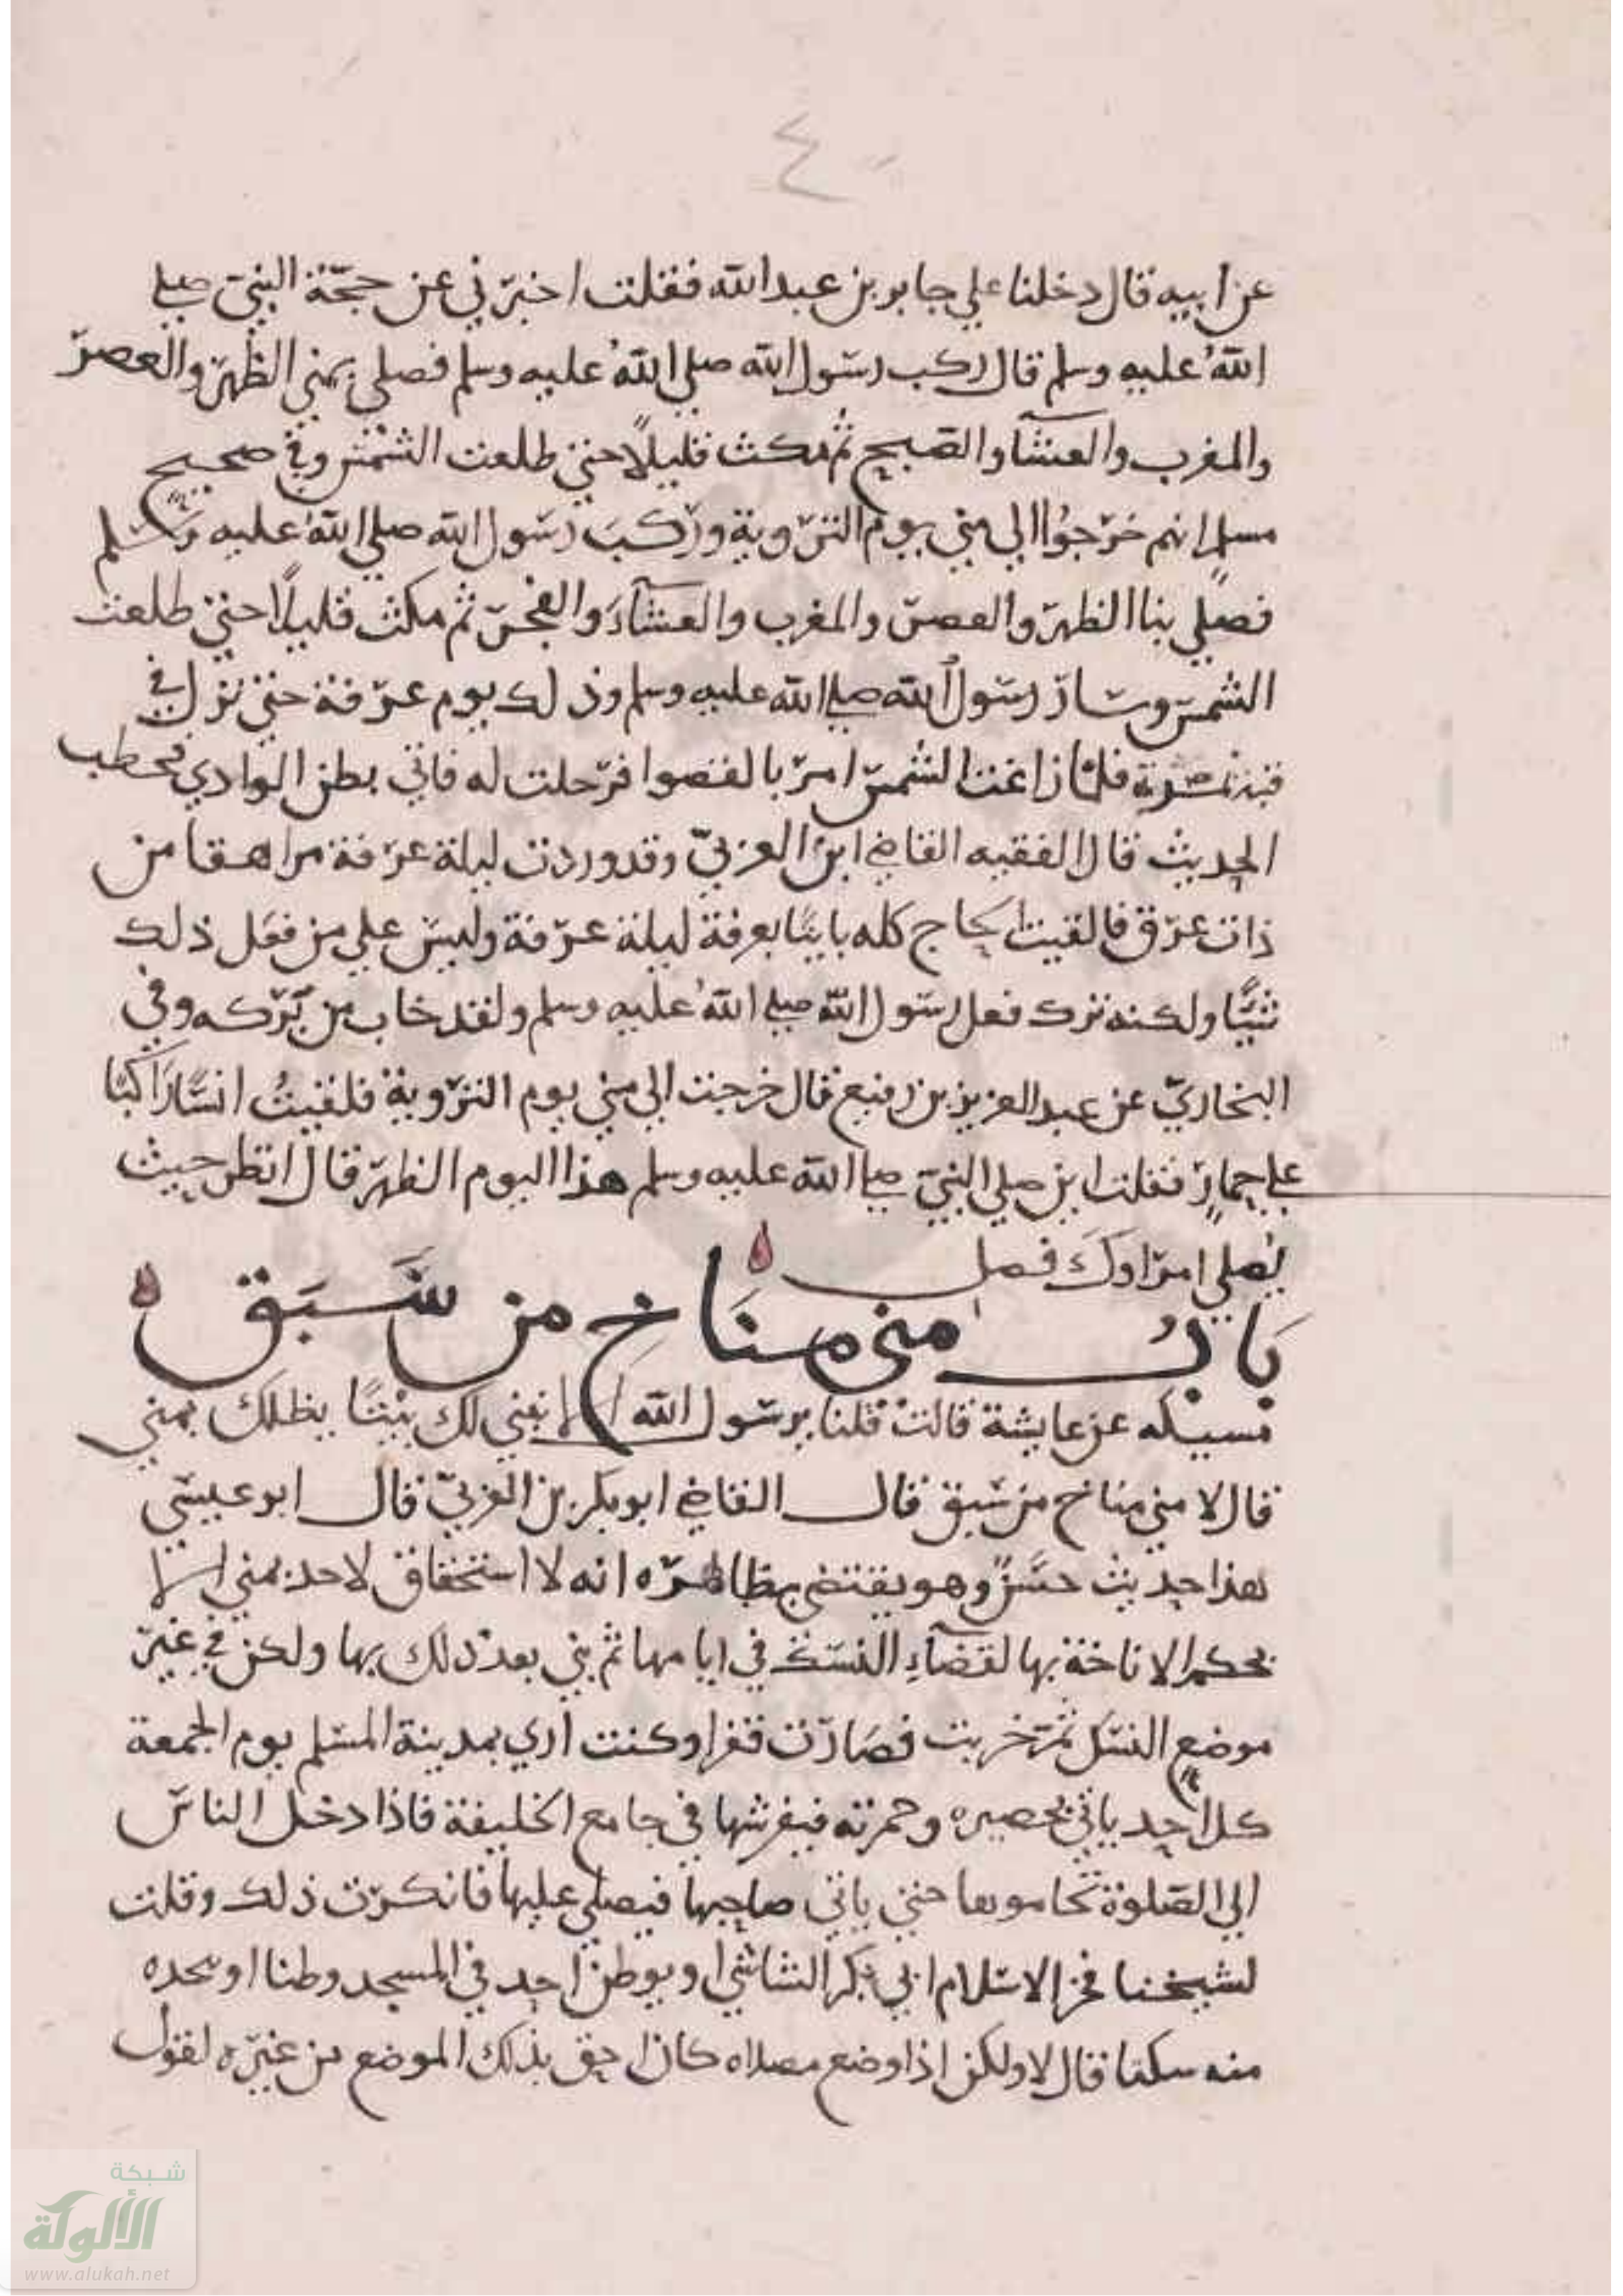 ٤
عن ابيه قال دخلنا علي جابر بن عبد الله فقلت اخبرني عن حجة النبي صلي
الله عليه وسلم قال ركب رسول الله صلي الله عليه وسلم فصلي بمني الظهر والعصر
والمغرب والعشا والصبح ثم مكث قليلا حتي طلعت الشمس وفي صحيح
مسلم انهم خرجوا الي مني يوم التروية وركب رسول الله صلي الله عليه وسلم
فصلي بنا الظهر والعصر والمغرب والعشآ والفجر ثم مكث قليلا حتي طلعت
الشمس وسار رسول الله صلي الله عليه وسلم وذلك يوم عرفة حتي نزل في
فلما زاغت الشمس امر بالقصوا فرحلت له فاتي بطن الوادي فخطب
الحديث قال الفقيه القاضي ابن العربي وقد وردت ليلة عرفة مراهقا من
ذات عرق فالقيت الحاج كله بايتا بعرفة ليلة عرفة وليس علي من فعل ذلك
شيا ولكنه ترك فعل رسول الله صلي الله عليه وسلم ولقد خاب من تركه وفي
البخاري عن عبد العزيز بن رفيع قال خرجت الي مني يوم التروية فلقيت انسا راكبا
علي حمار فقلت اين صلي النبي صلي الله عليه وسلم هذا اليوم الظهر قال انظر حيث
يصلي امراوك فصل
باب مني مناخ من سبق
مسيكه عن عايشة قالت قلنا يرسول الله الا نبني لك بيتا يظلك بمني
قال لا مني مناخ من سبق قال القاضي ابو بكر بن العربي قال ابو عيسي
هذا حديث حسن وهو يقتضي بظاهره انه لا استحقاق لاحد بمني الا
بحكم الاناخة بها لقضآء النسك في ايامها ثم بني بعد ذلك بها ولكن في غير
موضع النسك ثم خربت فصارت قفرا وكنت اري بمدينة السلم يوم الجمعة
كل احد ياتي بحصيره وخمرته فيفرشها في جامع الخليفة فاذا دخل الناس
الي الصلوة تحاموها حتي ياتي صاحبها فيصلي عليها فانكرت ذلك وقلت
لشيخنا فخر الاسلام ابي بكر الشاشي او يوطن احد في المسجد وطنا او يتخذه
منه سكنا قال لا ولكن اذا وضع مصلاه كان احق بذلك الموضع من غيره لقول
شبكة
الألوكة
www.alukah.net